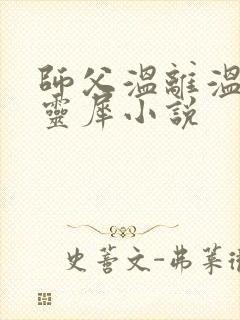 師父溫離溫
靈犀小說
史蒂文-弗萊徹